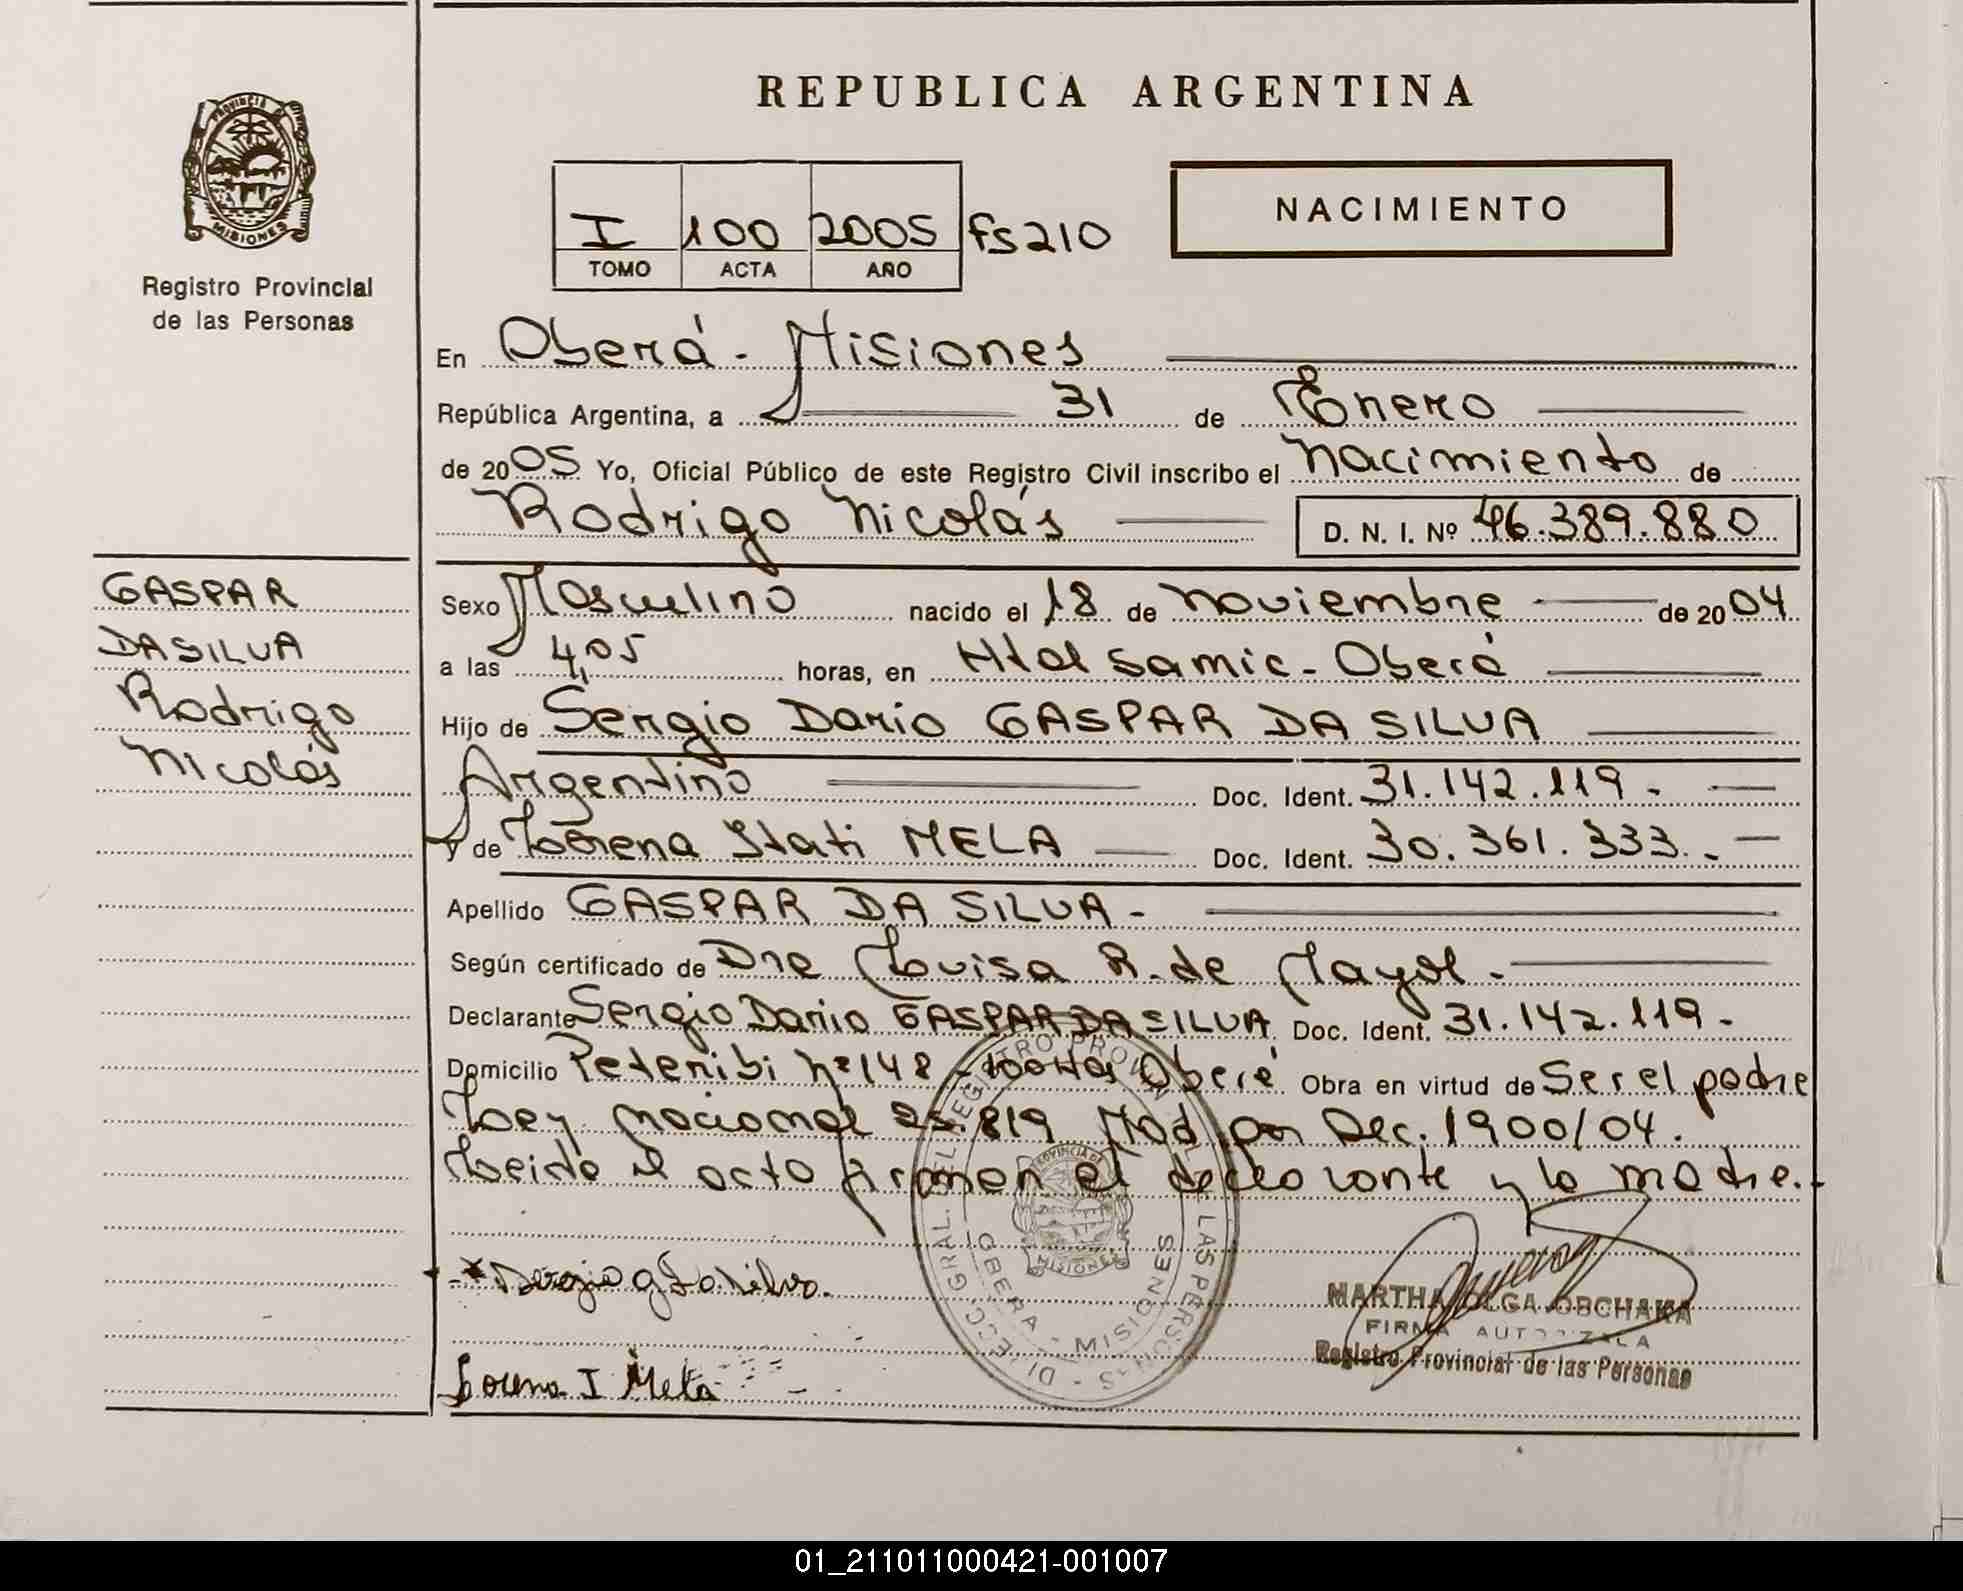 REPUBLICA ARGENTINA
PROVINCIA DE
MISIONES
Registro Provincial
de las Personas
I 100 2005 fs 210
TOMO ACTA AÑO
NACIMIENTO
En Oberá - Misiones
República Argentina, a 31 de Enero
de 2005 Yo, Oficial Público de este Registro Civil inscribo el Nacimiento de
Rodrigo Nicolás D. N. I. Nº 46.389.880
GASPAR
DA SILVA
Rodrigo
Nicolás
Sexo Masculino nacido el 18 de Noviembre de 2004
a las 4,05 horas, en Htal Samic - Oberá
Hijo de Sergio Dario GASPAR DA SILVA
Argentino Doc. Ident. 31.142.119.-
y de Lorena Itati MELA Doc. Ident. 30.361.333.-
Apellido GASPAR DA SILVA -
Según certificado de Dra Louisa R. de Mayol.
Declarante Sergio Dario GASPAR DA SILVA Doc. Ident. 31.142.119.-
Domicilio Peteribi Nº 148 - 100 Has Oberá Obra en virtud de Ser el padre
Ley Nacional 25.819 Mod por Dec. 1900/04.
Leida el acta firman el declarante y la madre.-
Sergio g Da Silva.
Lorena I Mela
DIRECC. GRAL. DEL REGISTRO PROV. DE LAS PERSONAS
OBERA - MISIONES
MARTHA OLGA OBCHAKA
FIRMA AUTORIZADA
Registro Provincial de las Personas
01_211011000421-001007